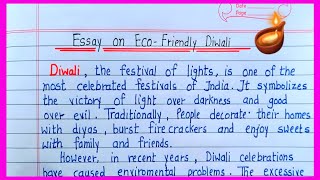 Date
Page
Essay on Eco-Friendly Diwali
Diwali, the festival of lights, is one of the
most celebrated festivals of India. It symbolizes
the victory of light over darkness and good
over evil. Traditionally, People decorate their homes
with diyas, burst firecrackers and enjoy sweets
with family and friends.
However, in recent years, Diwali celebrations
have caused enviromental problems. The excessive